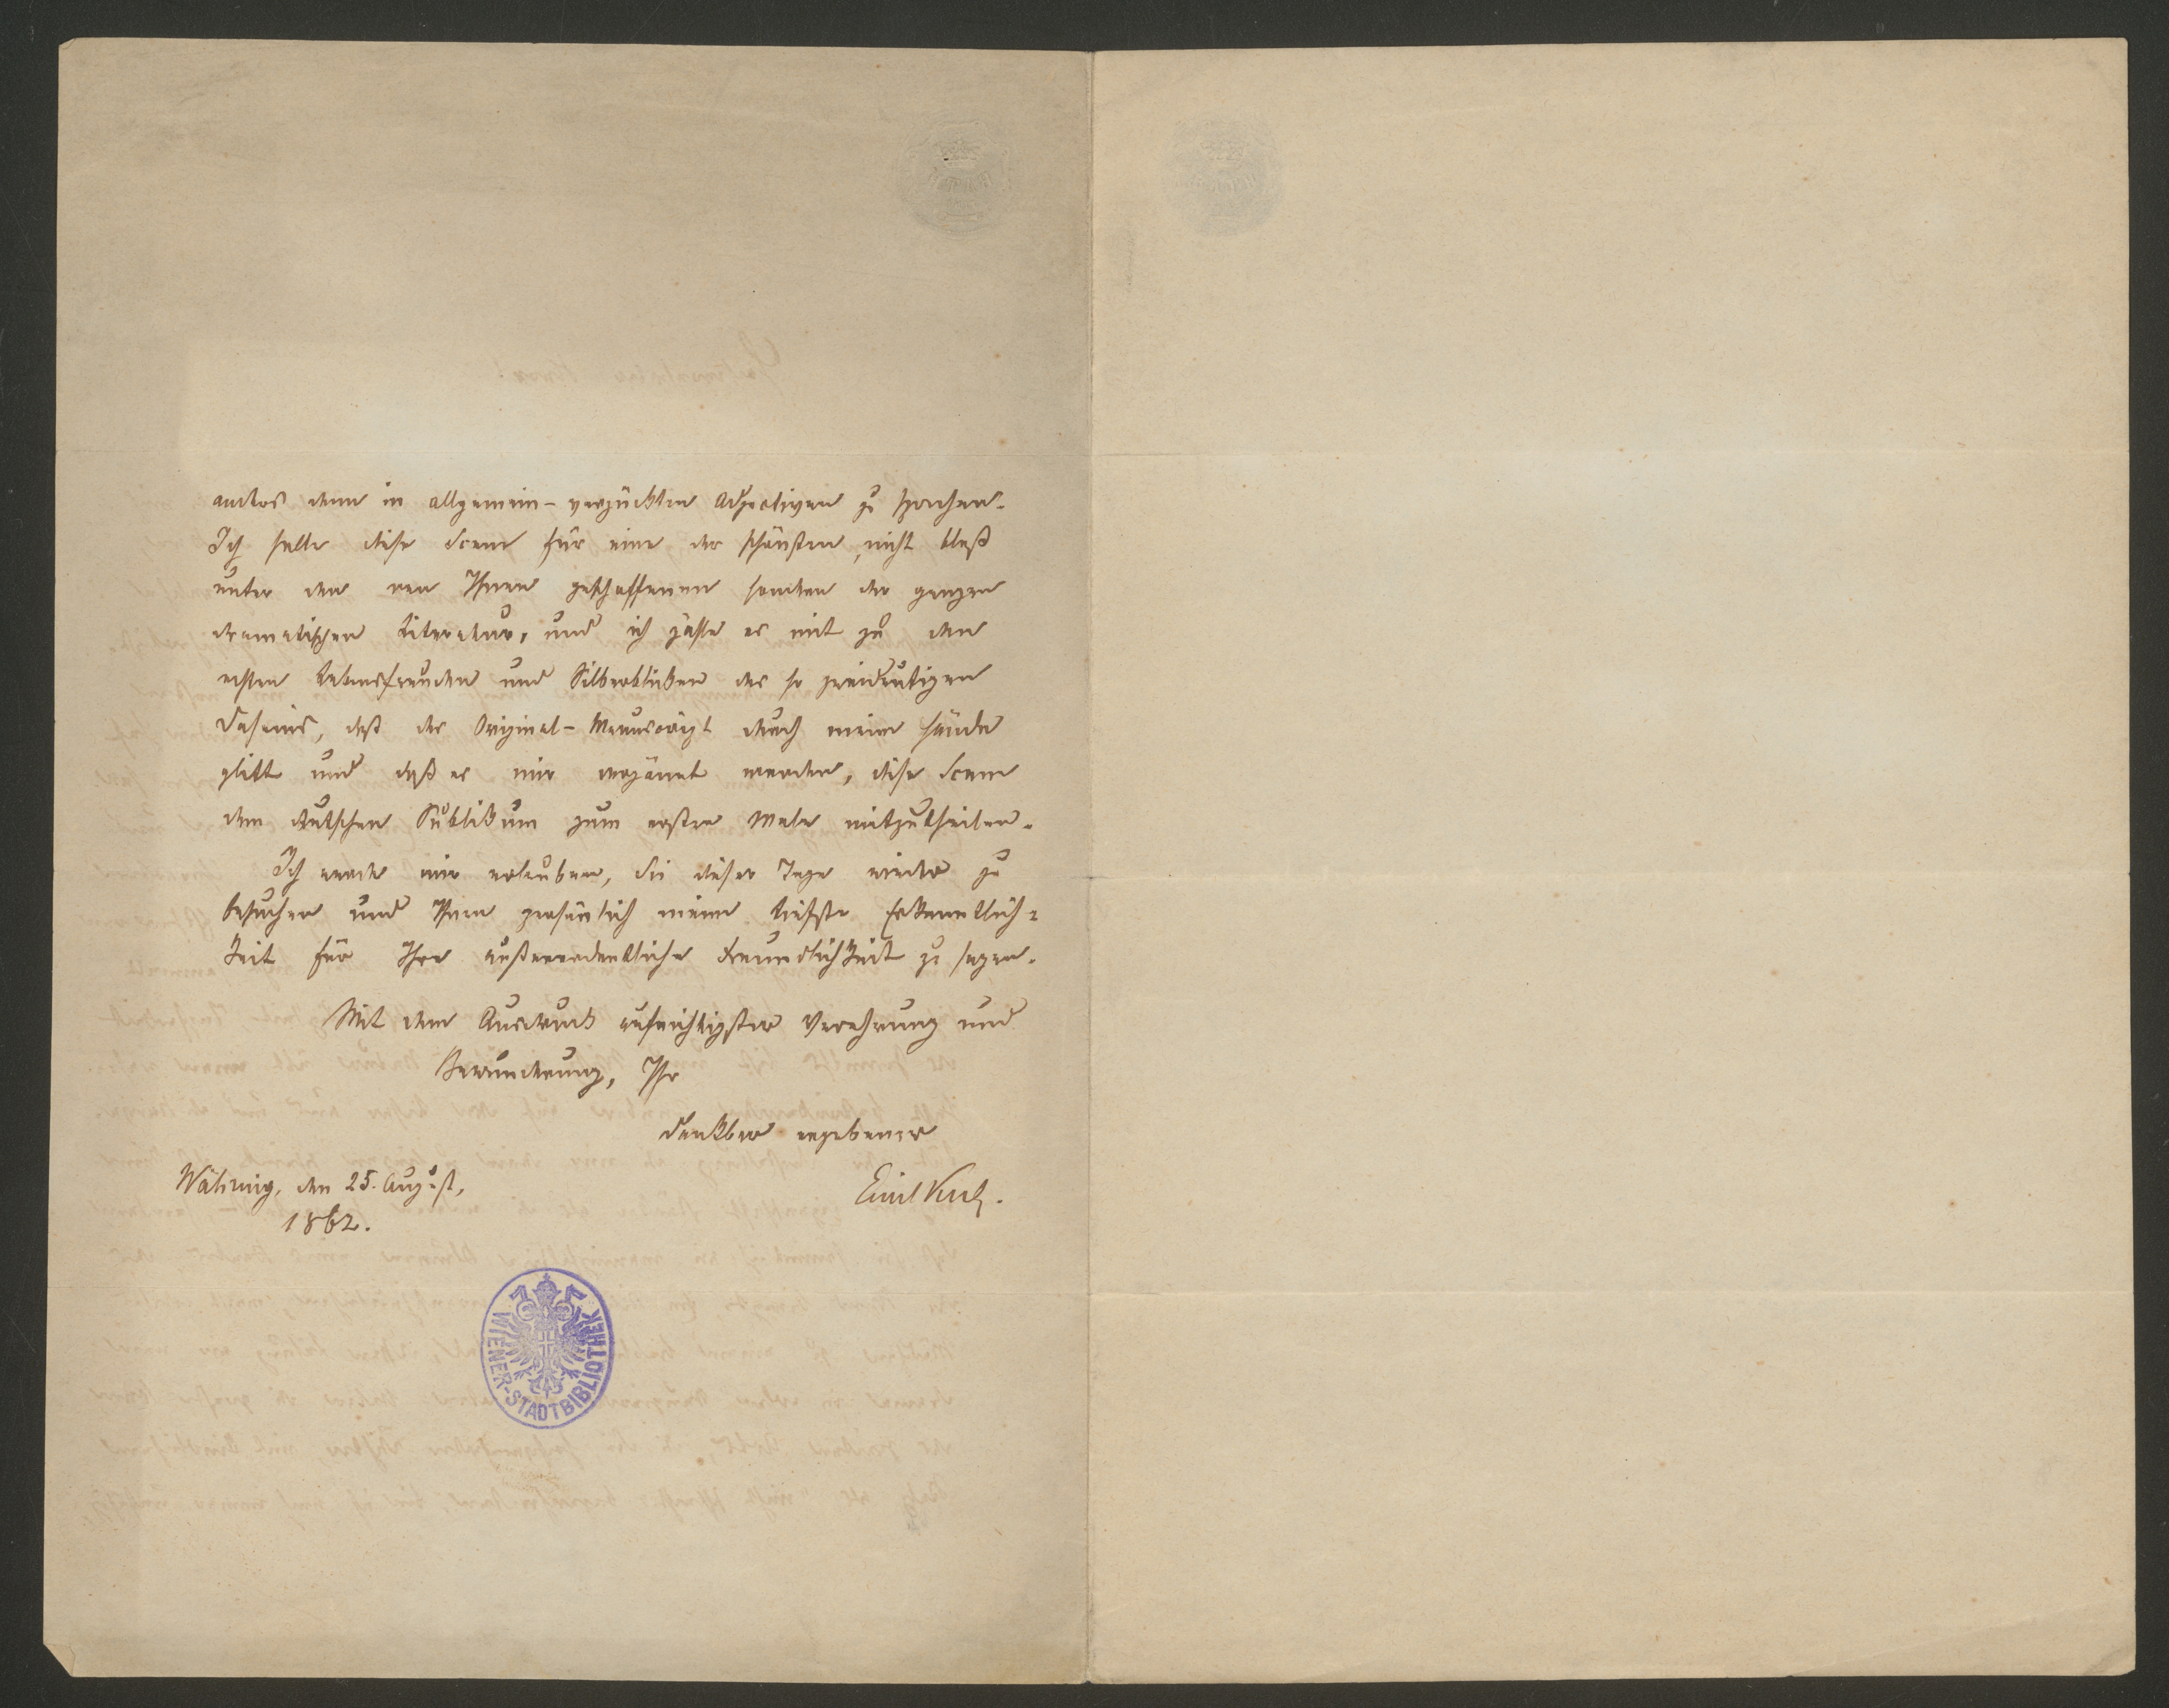 anders denn in allgemein-verzückten Adjectiven zu sprechen.
Ich halte diese Scene für eine der schönsten, nicht bloß
unter den von Ihnen geschaffenen sondern der ganzen
dramatischen Literatur, und ich zähle es mit zu den
echten Lebensfreuden und Silberblicken des so zweideutigen
Daseins, daß das Original-Manuscript durch meine Hände
glitt und daß es mir vergönnt worden, diese Scene
dem deutschen Publikum zum ersten Male mitzutheilen.
Ich werde mir erlauben, Sie dieser Tage wieder zu
besuchen und Ihnen persönlich meine tiefste Erkenntlich=
keit für Ihre außerordentliche Freundlichkeit zu sagen.
Mit dem Ausdruck aufrichtigster Verehrung und
Bewunderung, Ihr
dankbar ergebener
Emil Kuh.
Währing, den 25. August,
1862.
WIENER-STADTBIBLIOTHEK